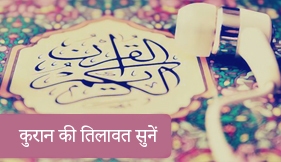 القرآن الكريم
कुरान की तिलावत सुनें